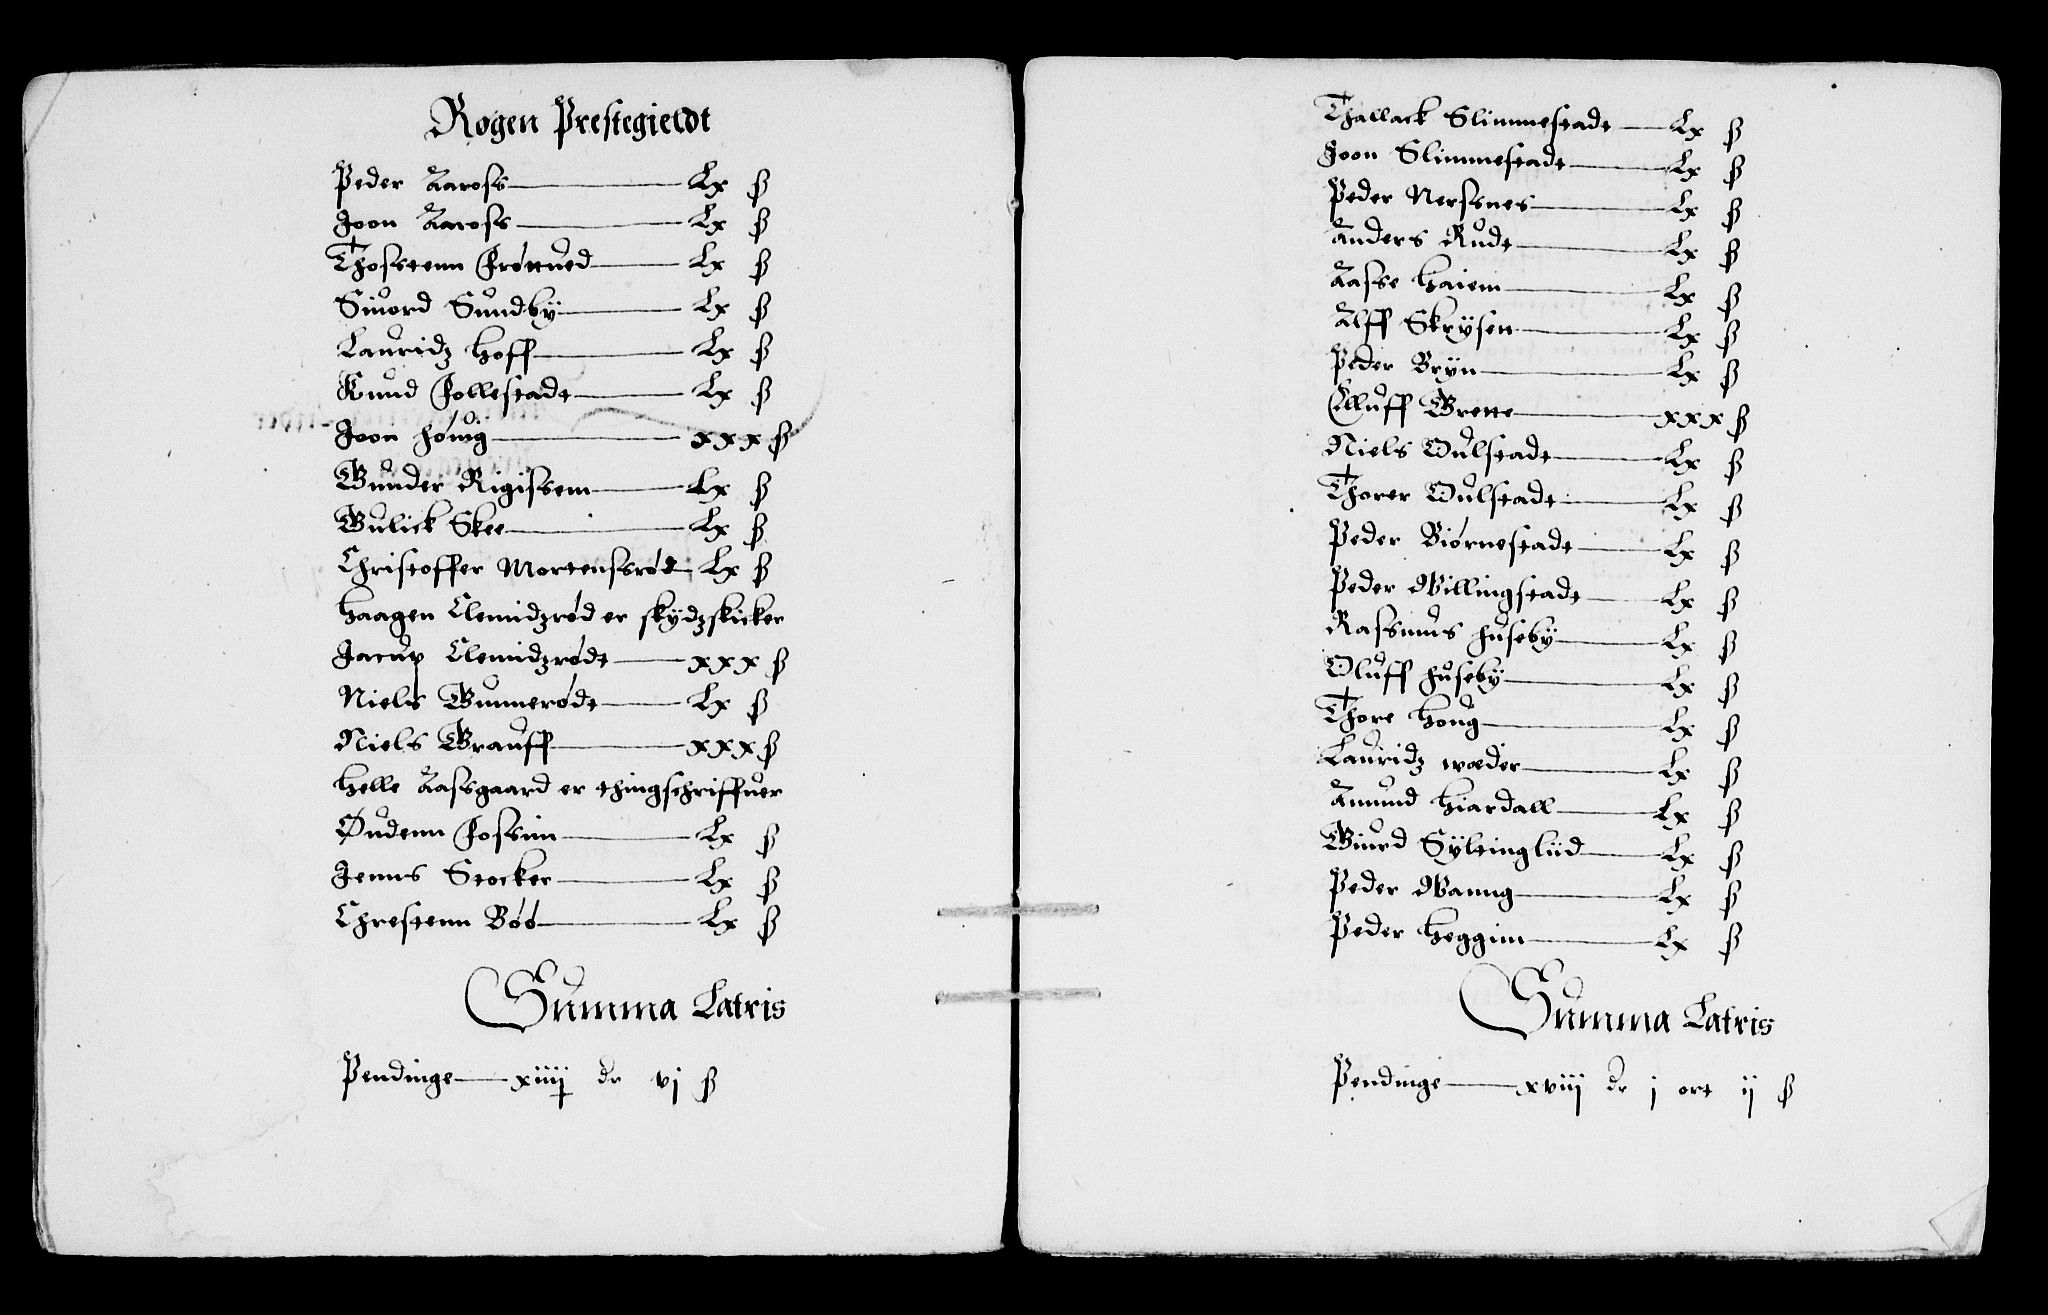 Røgen Prestegieldt
Peder Aaross Lx ß
Joen Aaross Lx ß
Thosstenn Frøttued Lx ß
Siuord Sundby Lx ß
Lauridz Hoff Lx ß
Knud Follestadt Lx ß
Joen Høuig xxx ß
Gunder Rigissem Lx ß
Gulick Skee Lx ß
Christoffer Mortenssrød Lx ß
Haagen Clemidzrød er skydzskicker
Jacup Clemidzrødt xxx ß
Niels Gunnerødt Lx ß
Niels Grauff xxx ß
Helle Aassgaard er thingschriffuer
Øudenn Fossim Lx ß
Jenns Stocker Lx ß
Chrestenn Bøø Lx ß
Summa Latris
Pendinge xiiij dr vj ß
Thallack Slimmestadt Lx ß
Joen Slimmestadt Lx ß
Peder Nerssnes Lx ß
Anders Rudt Lx ß
Aasse Haiem Lx ß
Alff Skrysen Lx ß
Peder Bryn Lx ß
Elluff Grette xxx ß
Niels Oulstadt Lx ß
Thorer Oulstadt Lx ß
Peder Biørnestadt Lx ß
Peder Willingstadt Lx ß
Rassmus Huseby Lx ß
Oluff Huseby Lx ß
Thore Houg Lx ß
Lauridz wæder Lx ß
Amund Hiardall Lx ß
Giurd Syltingliid Lx ß
Peder Wanng Lx ß
Peder Heggim Lx ß
Summa Latris
Pendinge xviij dr j ort ij ß